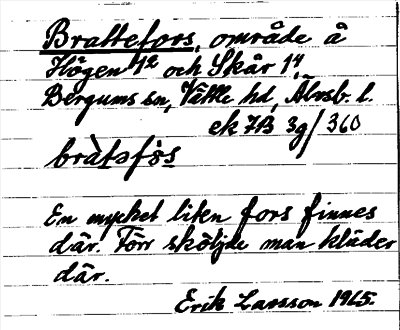 Brattefors, område å
Högen 1² och Skår 1⁴
Bergums sn, Vättle hd, Älvsb. l.
ek 7B 3g/360
bràtəfò̀s
En mycket liten fors finnes
där. Förr sköljde man kläder
där.
Erik Larsson 1965.